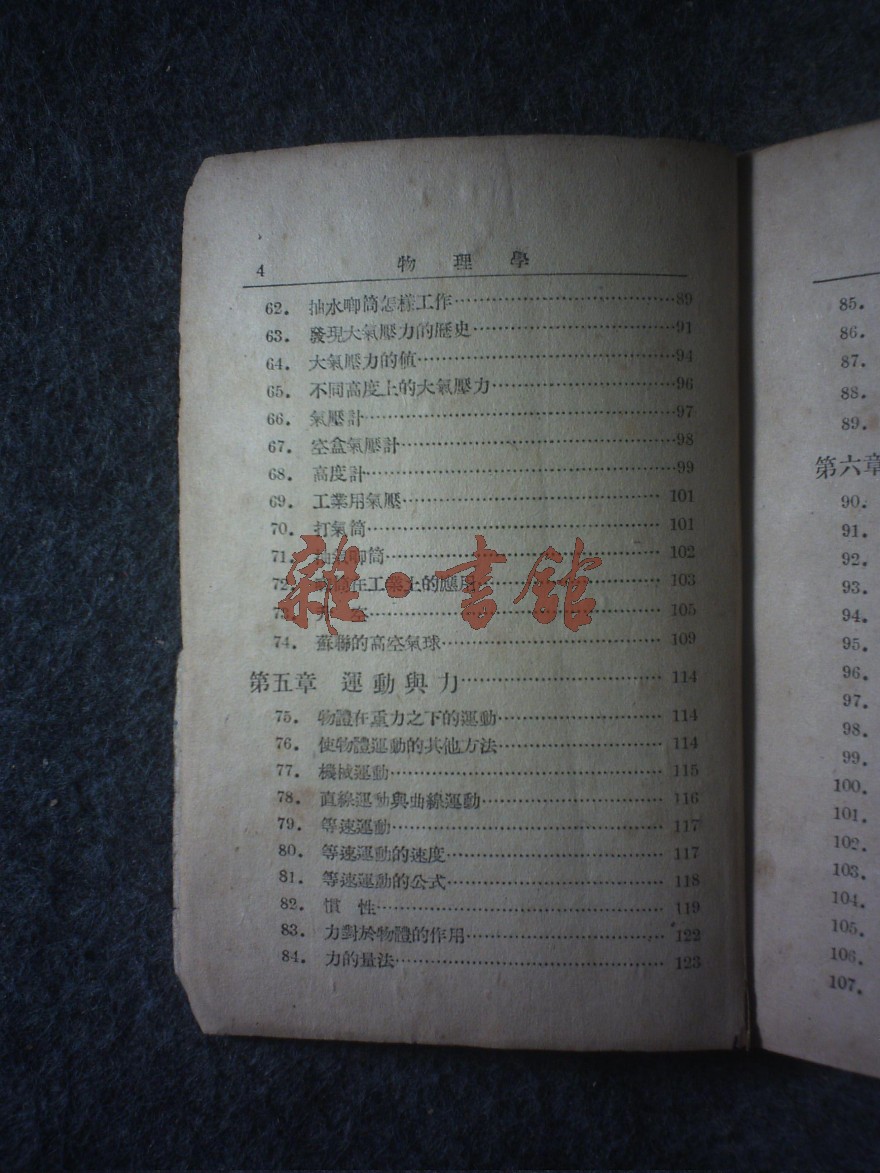 4 物理學
62. 抽水唧筒怎樣工作 89
63. 發現大氣壓力的歷史 91
64. 大氣壓力的值 94
65. 不同高度上的大氣壓力 96
66. 氣壓計 97
67. 空盒氣壓計 98
68. 高度計 99
69. 工業用氣壓 101
70. 打氣筒 101
71. 抽氣唧筒 102
72. 在工業上的應用 103
73. 105
雜·書館
74. 蘇聯的高空氣球 109
第五章 運動與力 114
75. 物體在重力之下的運動 114
76. 使物體運動的其他方法 114
77. 機械運動 115
78. 直線運動與曲線運動 116
79. 等速運動 117
80. 等速運動的速度 117
81. 等速運動的公式 118
82. 慣性 119
83. 力對於物體的作用 122
84. 力的量法 123
85.
86.
87.
88.
89.
第六章
90.
91.
92.
93.
94.
95.
96.
97.
98.
99.
100.
101.
102.
103.
104.
105.
106.
107.